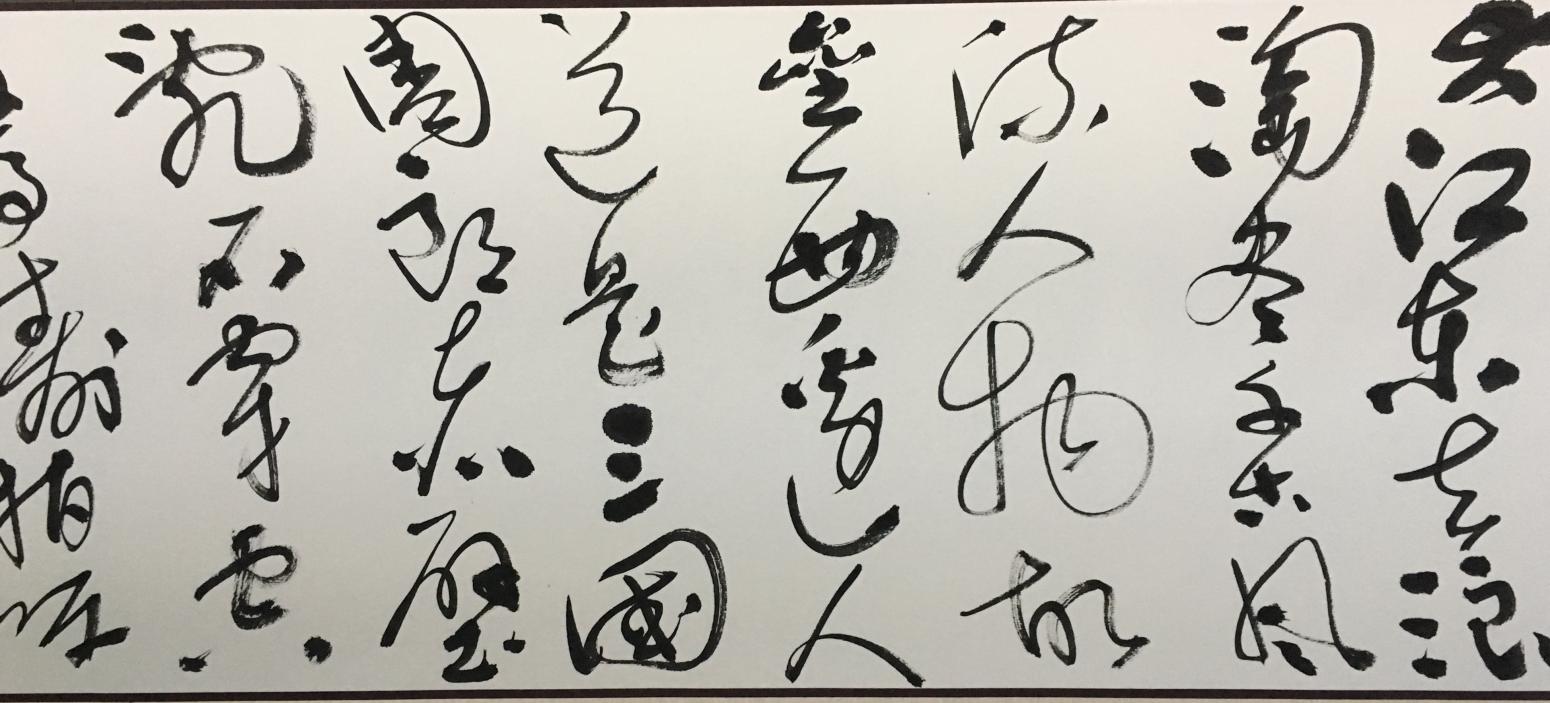 大江東去浪
淘盡千古風
流人物故
壘西邊人
道是三國
周郎赤壁
亂石穿空
驚濤拍岸